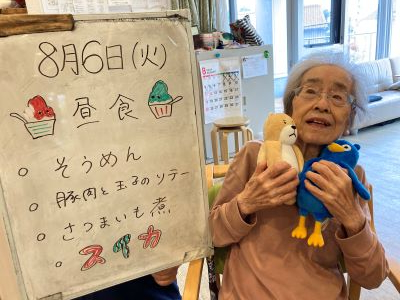 8月6日(火)
昼食
○ そうめん
○ 豚肉と玉子のソテー
○ さつまいも煮
○ スイカ